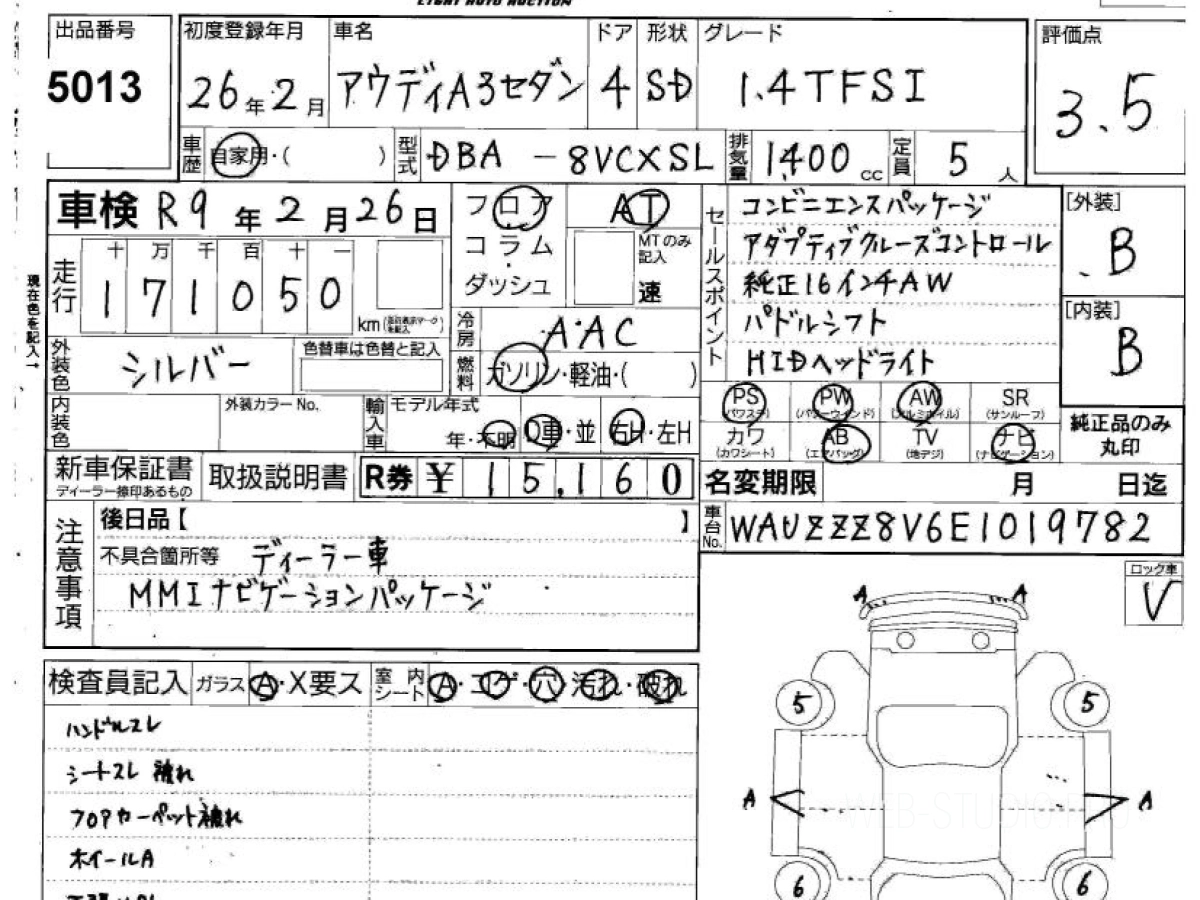 EIGHT AUTO AUCTION
出品番号 初度登録年月 車名 ドア 形状 グレード 評価点
5013 26年2月 アウディA3セダン 4 SD 1.4TFSI 3.5
車歴 自家用・( ) 型式 DBA-8VCXSL 排気量 1,400cc 定員 5人
車検 R9年2月26日 フロア AT
コラム・ダッシュ MTのみ記入 速
セールスポイント
コンビニエンスパッケージ
アダプティブクルーズコントロール
純正16インチAW
パドルシフト
HIDヘッドライト
[外装] B
[内装] B
現在色を記入→
走行 十 万 千 百 十 一
171050 km
冷房 A・AC
外装色 シルバー 色替車は色替と記入
燃料 ガソリン・軽油・( )
内装色 外装カラーNo. 輸入車 モデル年式 年・不明 D車・並 右H・左H
PS (パワステ) PW (パワーウインド) AW (アルミホイル) SR (サンルーフ)
カワ (カワシート) AB (エアバッグ) TV (地デジ) ナビ (ナビゲーション)
純正品のみ丸印
新車保証書 ディーラー捺印あるもの 取扱説明書 R券 ¥15,160
名変期限 月 日迄
車台No. WAUZZZ8V6E1019782
注意事項
後日品【 】
不具合箇所等 ディーラー車
MMIナビゲーションパッケージ
ロック車 V
検査員記入 ガラス A・X要ス 室内シート A・コゲ・穴・汚れ・破れ
ハンドルスレ
シートスレ 破れ
フロアカーペット破れ
ホイールA
A A
5 5
A A
6 6
WEB-STUDIO.PRO